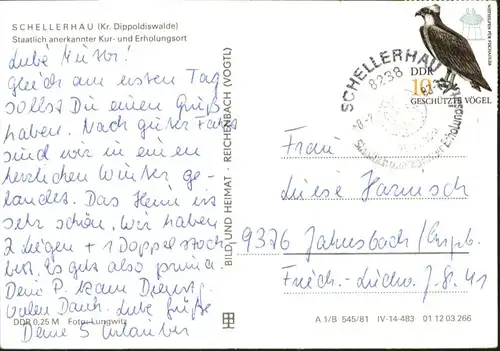 SCHELLERHAU (Kr. Dippoldiswalde)
Staatlich anerkannter Kur- und Erholungsort
Liebe Mutter!
Gleich am ersten Tag
sollst Du einen Gruß
haben. Nach guter Fahrt
sind wir in einen
herrlichen Winter ge-
landet. Das Heim ist
sehr schön, wir haben
2 Liegen + 1 Doppelstock
bett. Es geht also prima.
Deine P. kam Dienstg.
Vielen Dank. Liebe Grüße
Deine 5 Urlauber
DDR 0,25 M Foto: Lungwitz
BILD UND HEIMAT · REICHENBACH (VOGTL)
SCHELLERHAU
8238
DDR
10
GESCHÜTZTE VÖGEL
Frau
Liese Harnisch
9376 Jahnsbach/Erzgeb.
Friedr.-Ludw.-J.-S. 41
A 1/B 545/81 IV-14-483 01 12 03 266